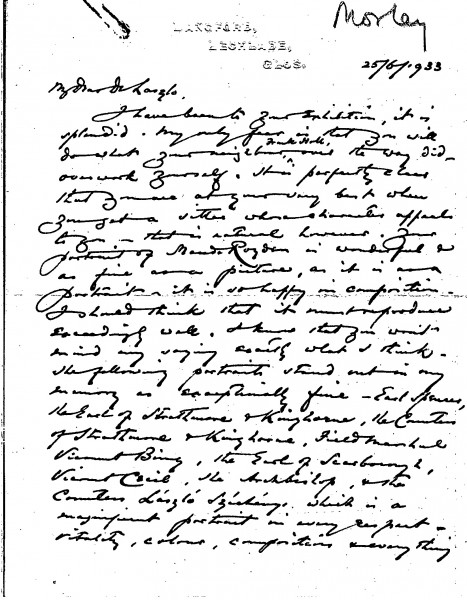 Morley
LANGFORD,
LECHLADE,
GLOS.
25/6/1933
My dear de Laszlo.
I have been to your Exhibition, it is
splendid. My only fear is that you will
do what your neighbour Frank Holl, over the way did -
overwork yourself. It is perfectly clear
that you are at your very best when
you get a sitter whose character appeals
to you - that is natural however. Your
portrait of Maude Royden is wonderful &
as fine as a picture, as it is as a
portrait - it is so happy in composition -
I should think that it must reproduce
exceedingly well. I know that you won't
mind my saying exactly what I think -
The following portraits stand out in my
memory as exceptionally fine - Earl Spencer,
the Earl of Strathmore & Kinghorne, the Countess
of Strathmore & Kinghorne, Field Marshal
Viscount Byng, the Earl of Scarborough,
Viscount Cecil, the Archbishop, & the
Countess László Széchényi, which is a
magnificent portrait in every respect -
vitality, colour, composition & everything